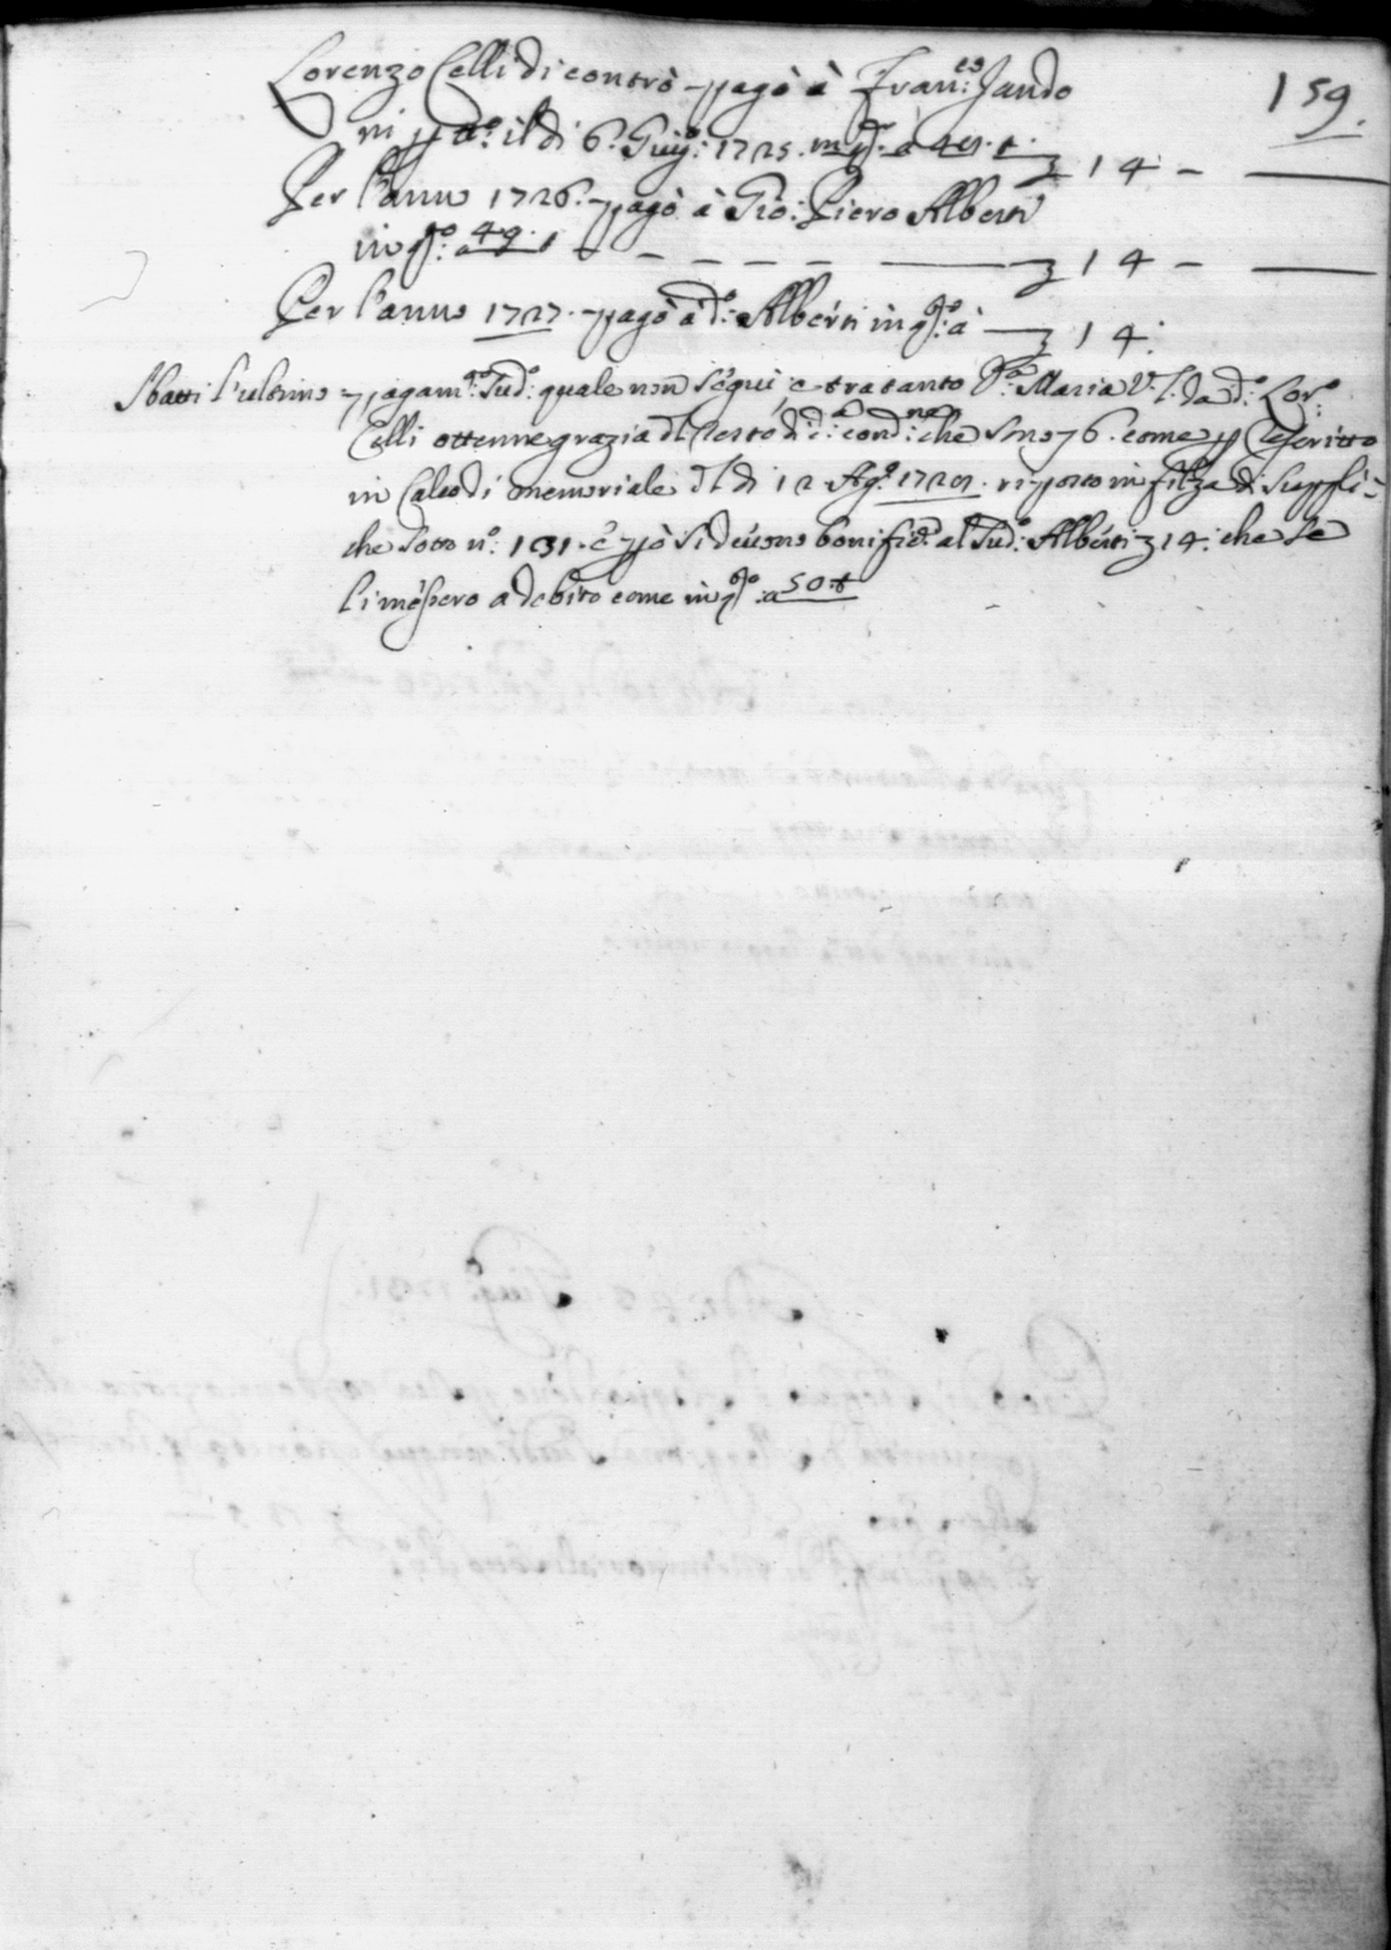 159.
Lorenzo Celli di contrò pagò à Fran:co Jando
ni p dto: il dì 6. Giug: 1725. in qto: a 41. t. ₤ 14 -
Per l'anno 1726. pagò à Gio: Piero Alberti
in qto: a 49. t - - - - - ₤ 14 -
Per l'anno 1727. pagò à do: Alberti in qto: à ₤ 14:
Sbatti l'ultimo pagam:to sudo: quale non seguì, e tratanto Da: Maria V. L. da do: Lor:o
Celli ottenne grazia dl resto di da: cond:ne che sono 76. come p rescritto
in calce di memoriale dl dì 12 Ago: 1728. riposto in filza di suppli=
che sotto no: 131. e pò si devono bonific: al sudo: Alberti ₤ 14: che se
li messero a debito come in qto: a 50 t